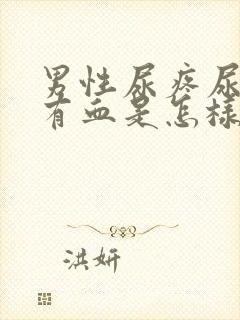 男性尿疼尿
有血是怎样
洪妍